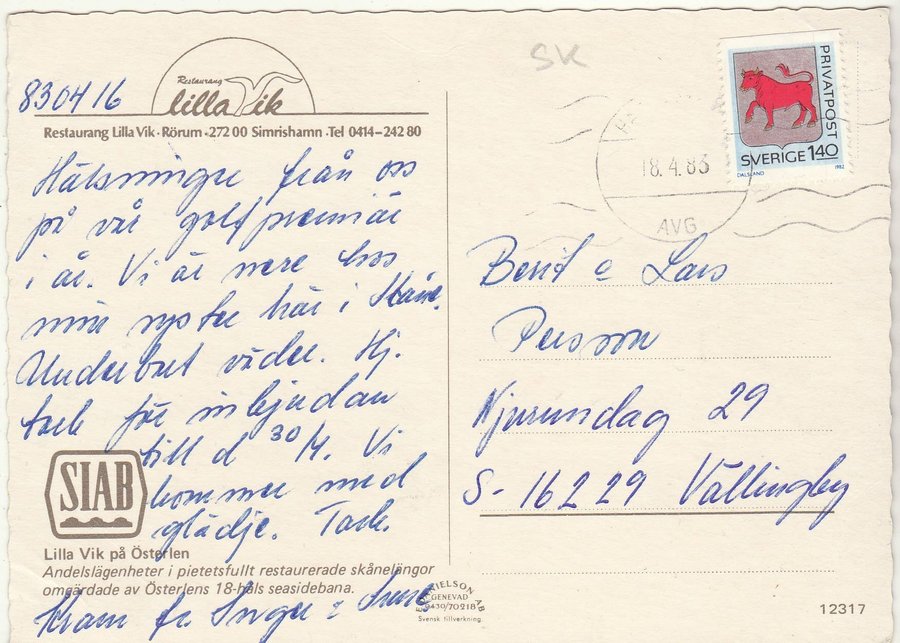 830416
Restaurang
lilla Vik
Restaurang Lilla Vik · Rörum · 272 00 Simrishamn · Tel 0414–242 80
Hälsningar från oss
på vår golfpremiär
i år. Vi är nere hos
min syster här i Skåne.
Underbart väder. Hj.
tack för inbjudan
till d 30/4. Vi
kommer med
glädje. Tack.
SIAB
Lilla Vik på Österlen
Andelslägenheter i pietetsfullt restaurerade skånelängor
omgärdade av Österlens 18-håls seasidebana.
Kram fr Inger o
SK
18.4.83
AVG
PRIVATPOST
SVERIGE 1.40
DALSLAND
1982
Berit o Lars
Persson
Njurundag 29
S-162 29 Vällingby
GENEVAD
Svensk tillverkning.
12317